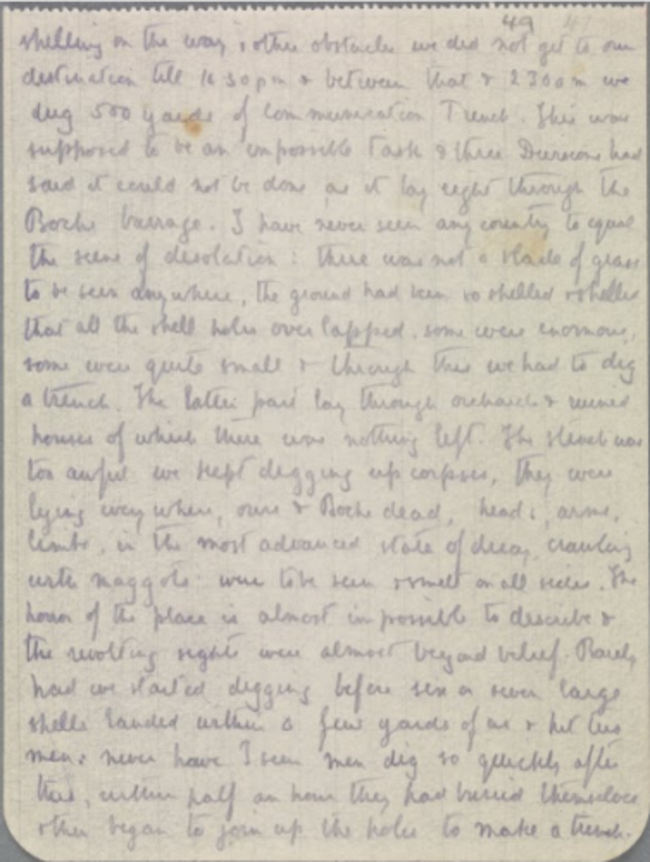 49 47
shelling on the way & other obstacles we did not get to our
destination till 10 30 pm & between that & 2 30 am we
dug 500 yards of Communication Trench. This was
supposed to be an impossible task & three Divisions had
said it could not be done as it lay right through the
Boche barrage. I have never seen any country to equal
the scene of desolation: there was not a blade of grass
to be seen anywhere, the ground had been so shelled & shelled
that all the shell holes over lapped. some were enormous,
some were quite small & through this we had to dig
a trench. The latter part lay through orchards & ruined
houses of which there was nothing left. The stench was
too awful we kept digging up corpses, they were
lying everywhere, ours & Boche dead, heads, arms,
limbs, in the most advanced state of decay crawling
with maggots were to be seen & smelt on all sides. The
horror of the place is almost impossible to describe &
the revolting sights were almost beyond belief. Barely
had we started digging before six or seven large
shells landed within a few yards of us & hit two
men: never have I seen men dig so quickly after
this, within half an hour they had buried themselves
& then began to join up the holes to make a trench.